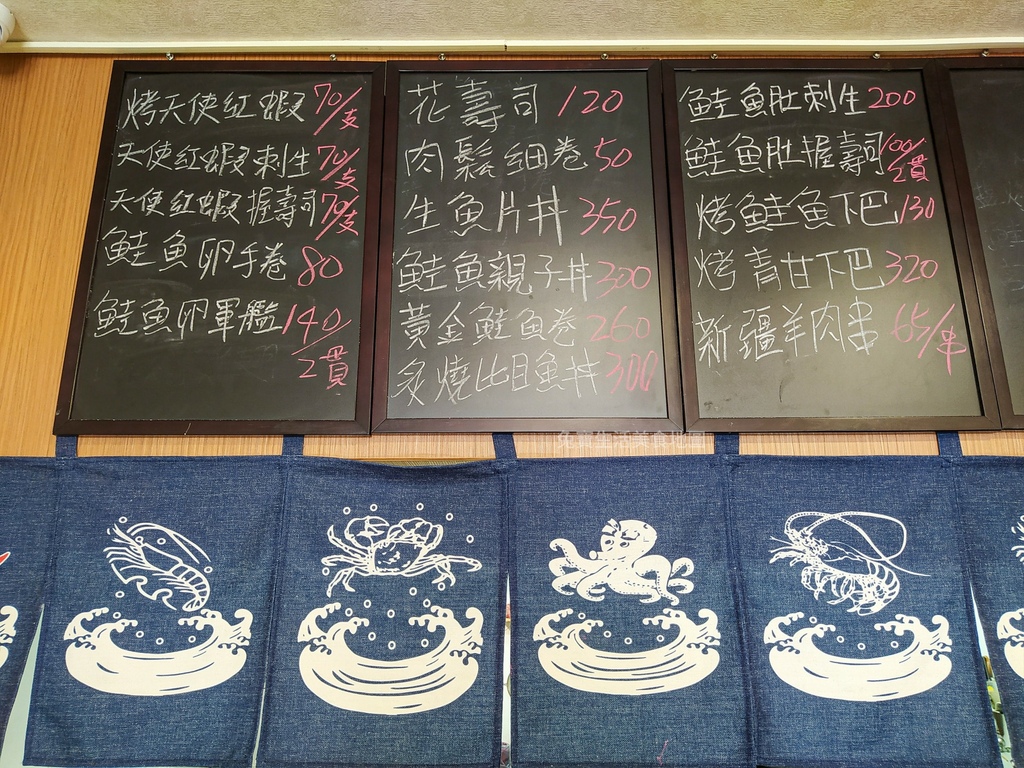 烤天使紅蝦 70/支
天使紅蝦刺生 70/支
天使紅蝦握壽司 70/支
鮭魚卵手卷 80
鮭魚卵軍艦 140/2貫
花壽司 120
肉鬆細卷 50
生魚片丼 350
鮭魚親子丼 300
黃金鮭魚卷 260
炙燒比目魚丼 300
鮭魚肚刺生 200
鮭魚肚握壽司 100/2貫
烤鮭魚下巴 130
烤青甘下巴 320
新疆羊肉串 65/串